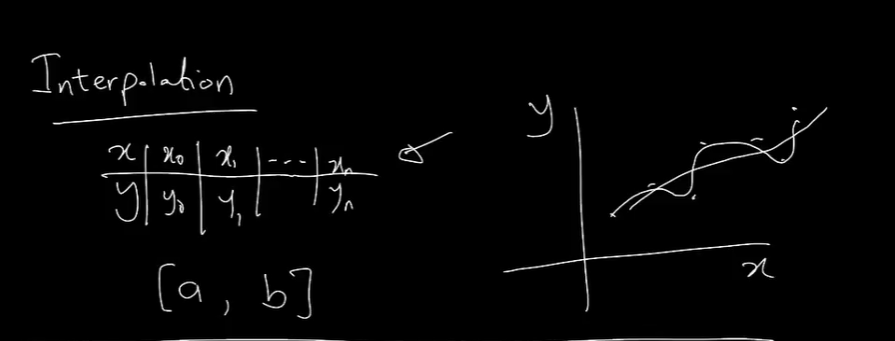 Interpolation
x | x₀ | x₁ | --- | xₙ
y | y₀ | y₁ | | yₙ
[a, b]
y
x